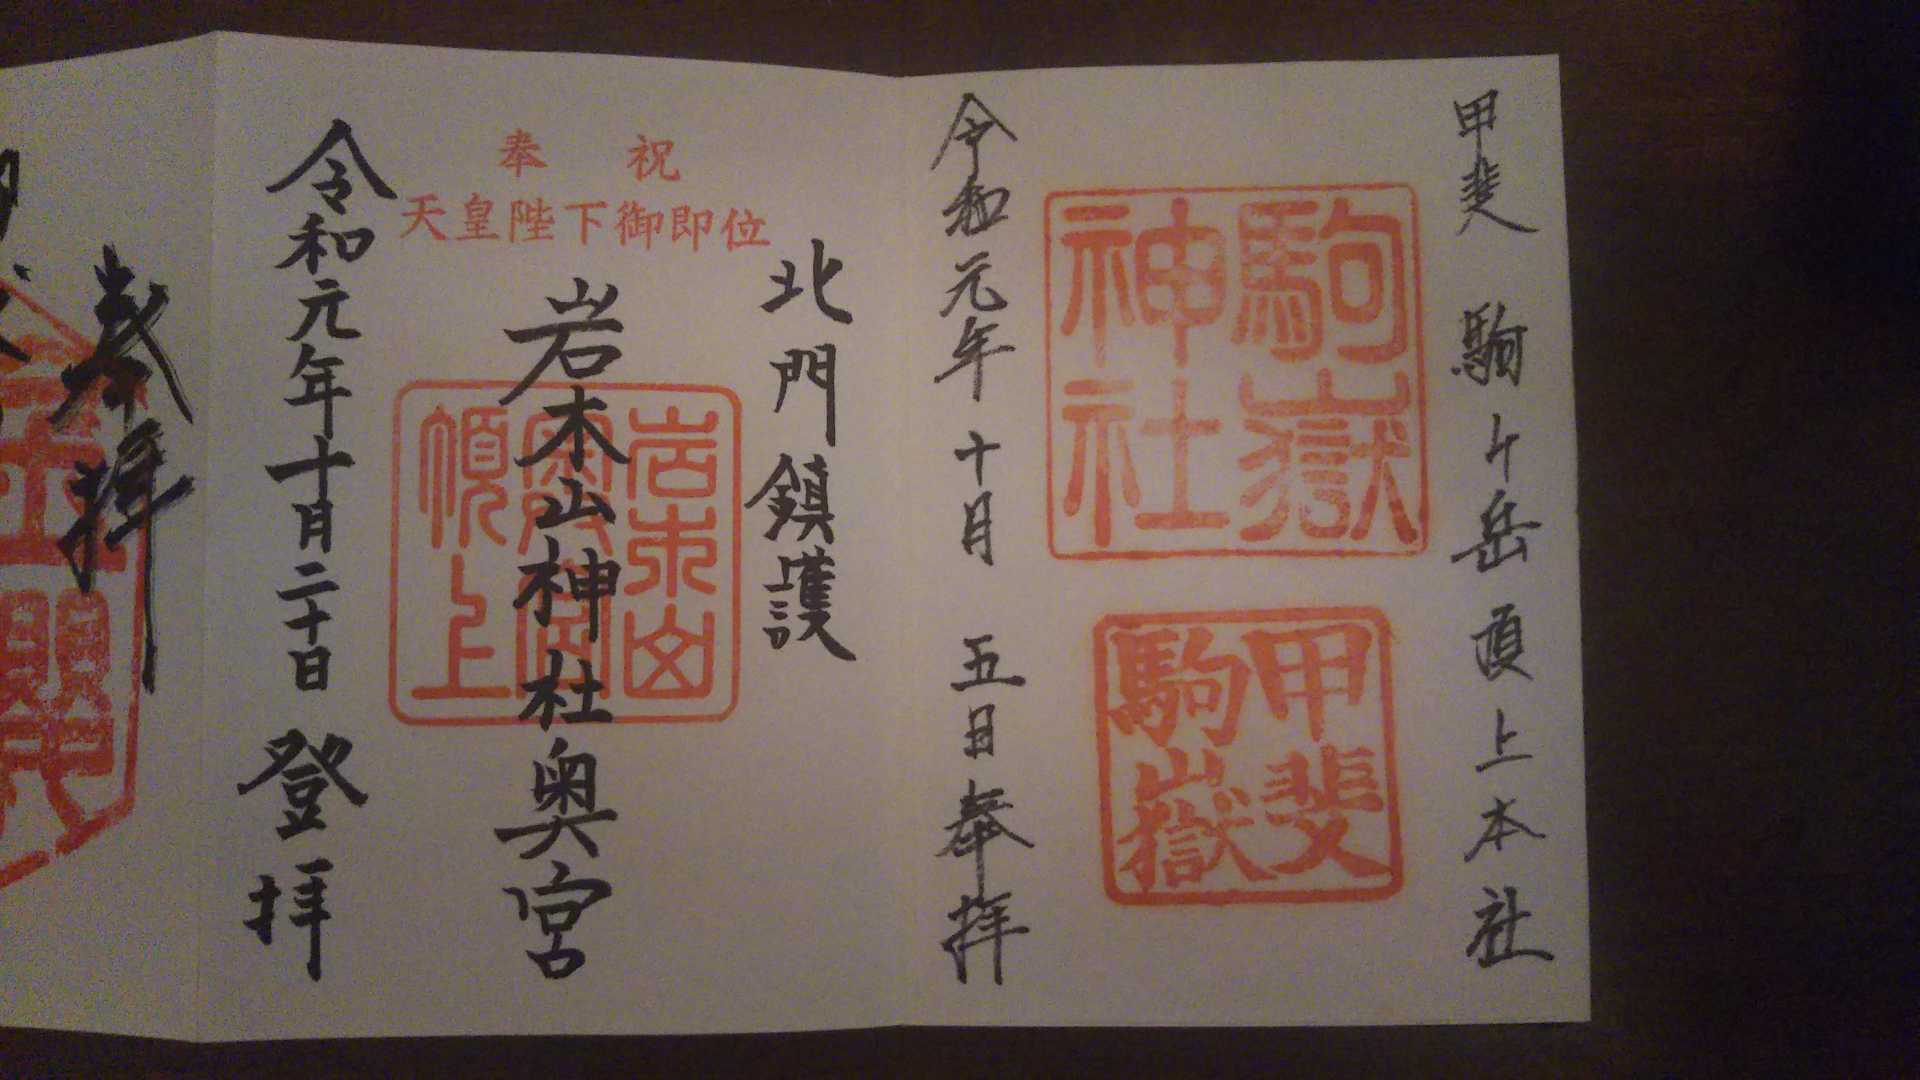 甲斐 駒ケ岳頂上本社
駒嶽
神社
甲斐
駒嶽
令和元年十月 五日奉拝
奉祝
天皇陛下御即位
北門鎮護
岩木山神社奥宮
岩木山
頂上
令和元年十月二十日 登拝
奉拝